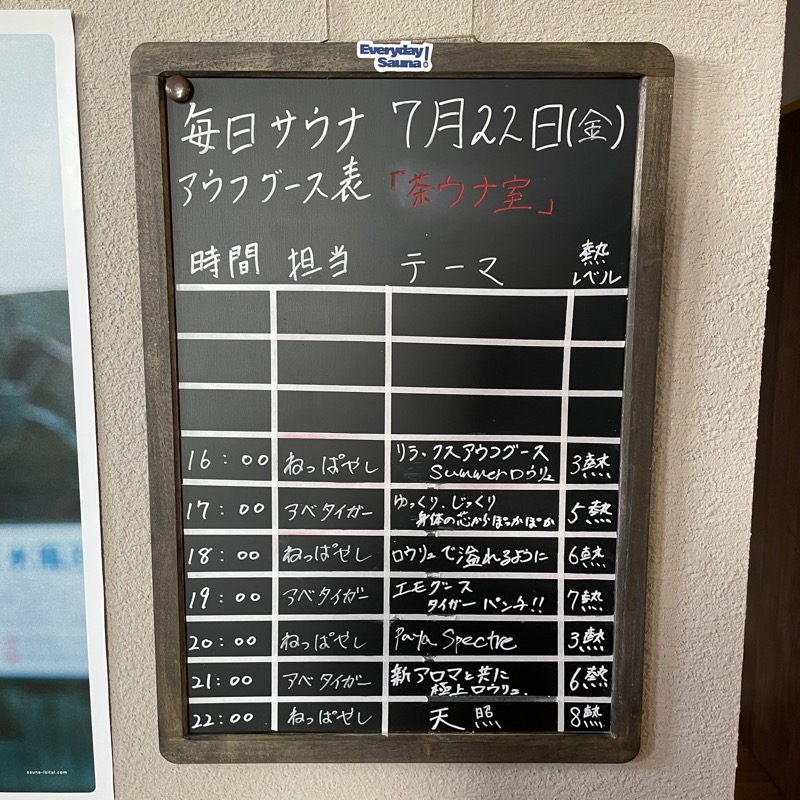 Everyday
Sauna!
毎日サウナ 7月22日(金)
アウフグース表 「茶ウナ室」
時間 担当 テーマ 熱
レベル
16:00 ねっぱやし リラックスアウフグース
Summerロウリュ 3熱
17:00 アベタイガー ゆっくり、じっくり
身体の芯からぽっかぽか 5熱
18:00 ねっぱやし ロウリュで溢れるように 6熱
19:00 アベタイガー エモグース
タイガーパンチ!! 7熱
20:00 ねっぱやし Spectre 3熱
21:00 アベタイガー 新アロマと共に
極上ロウリュ. 6熱
22:00 ねっぱやし 天照 8熱
sauna-ikitai.com